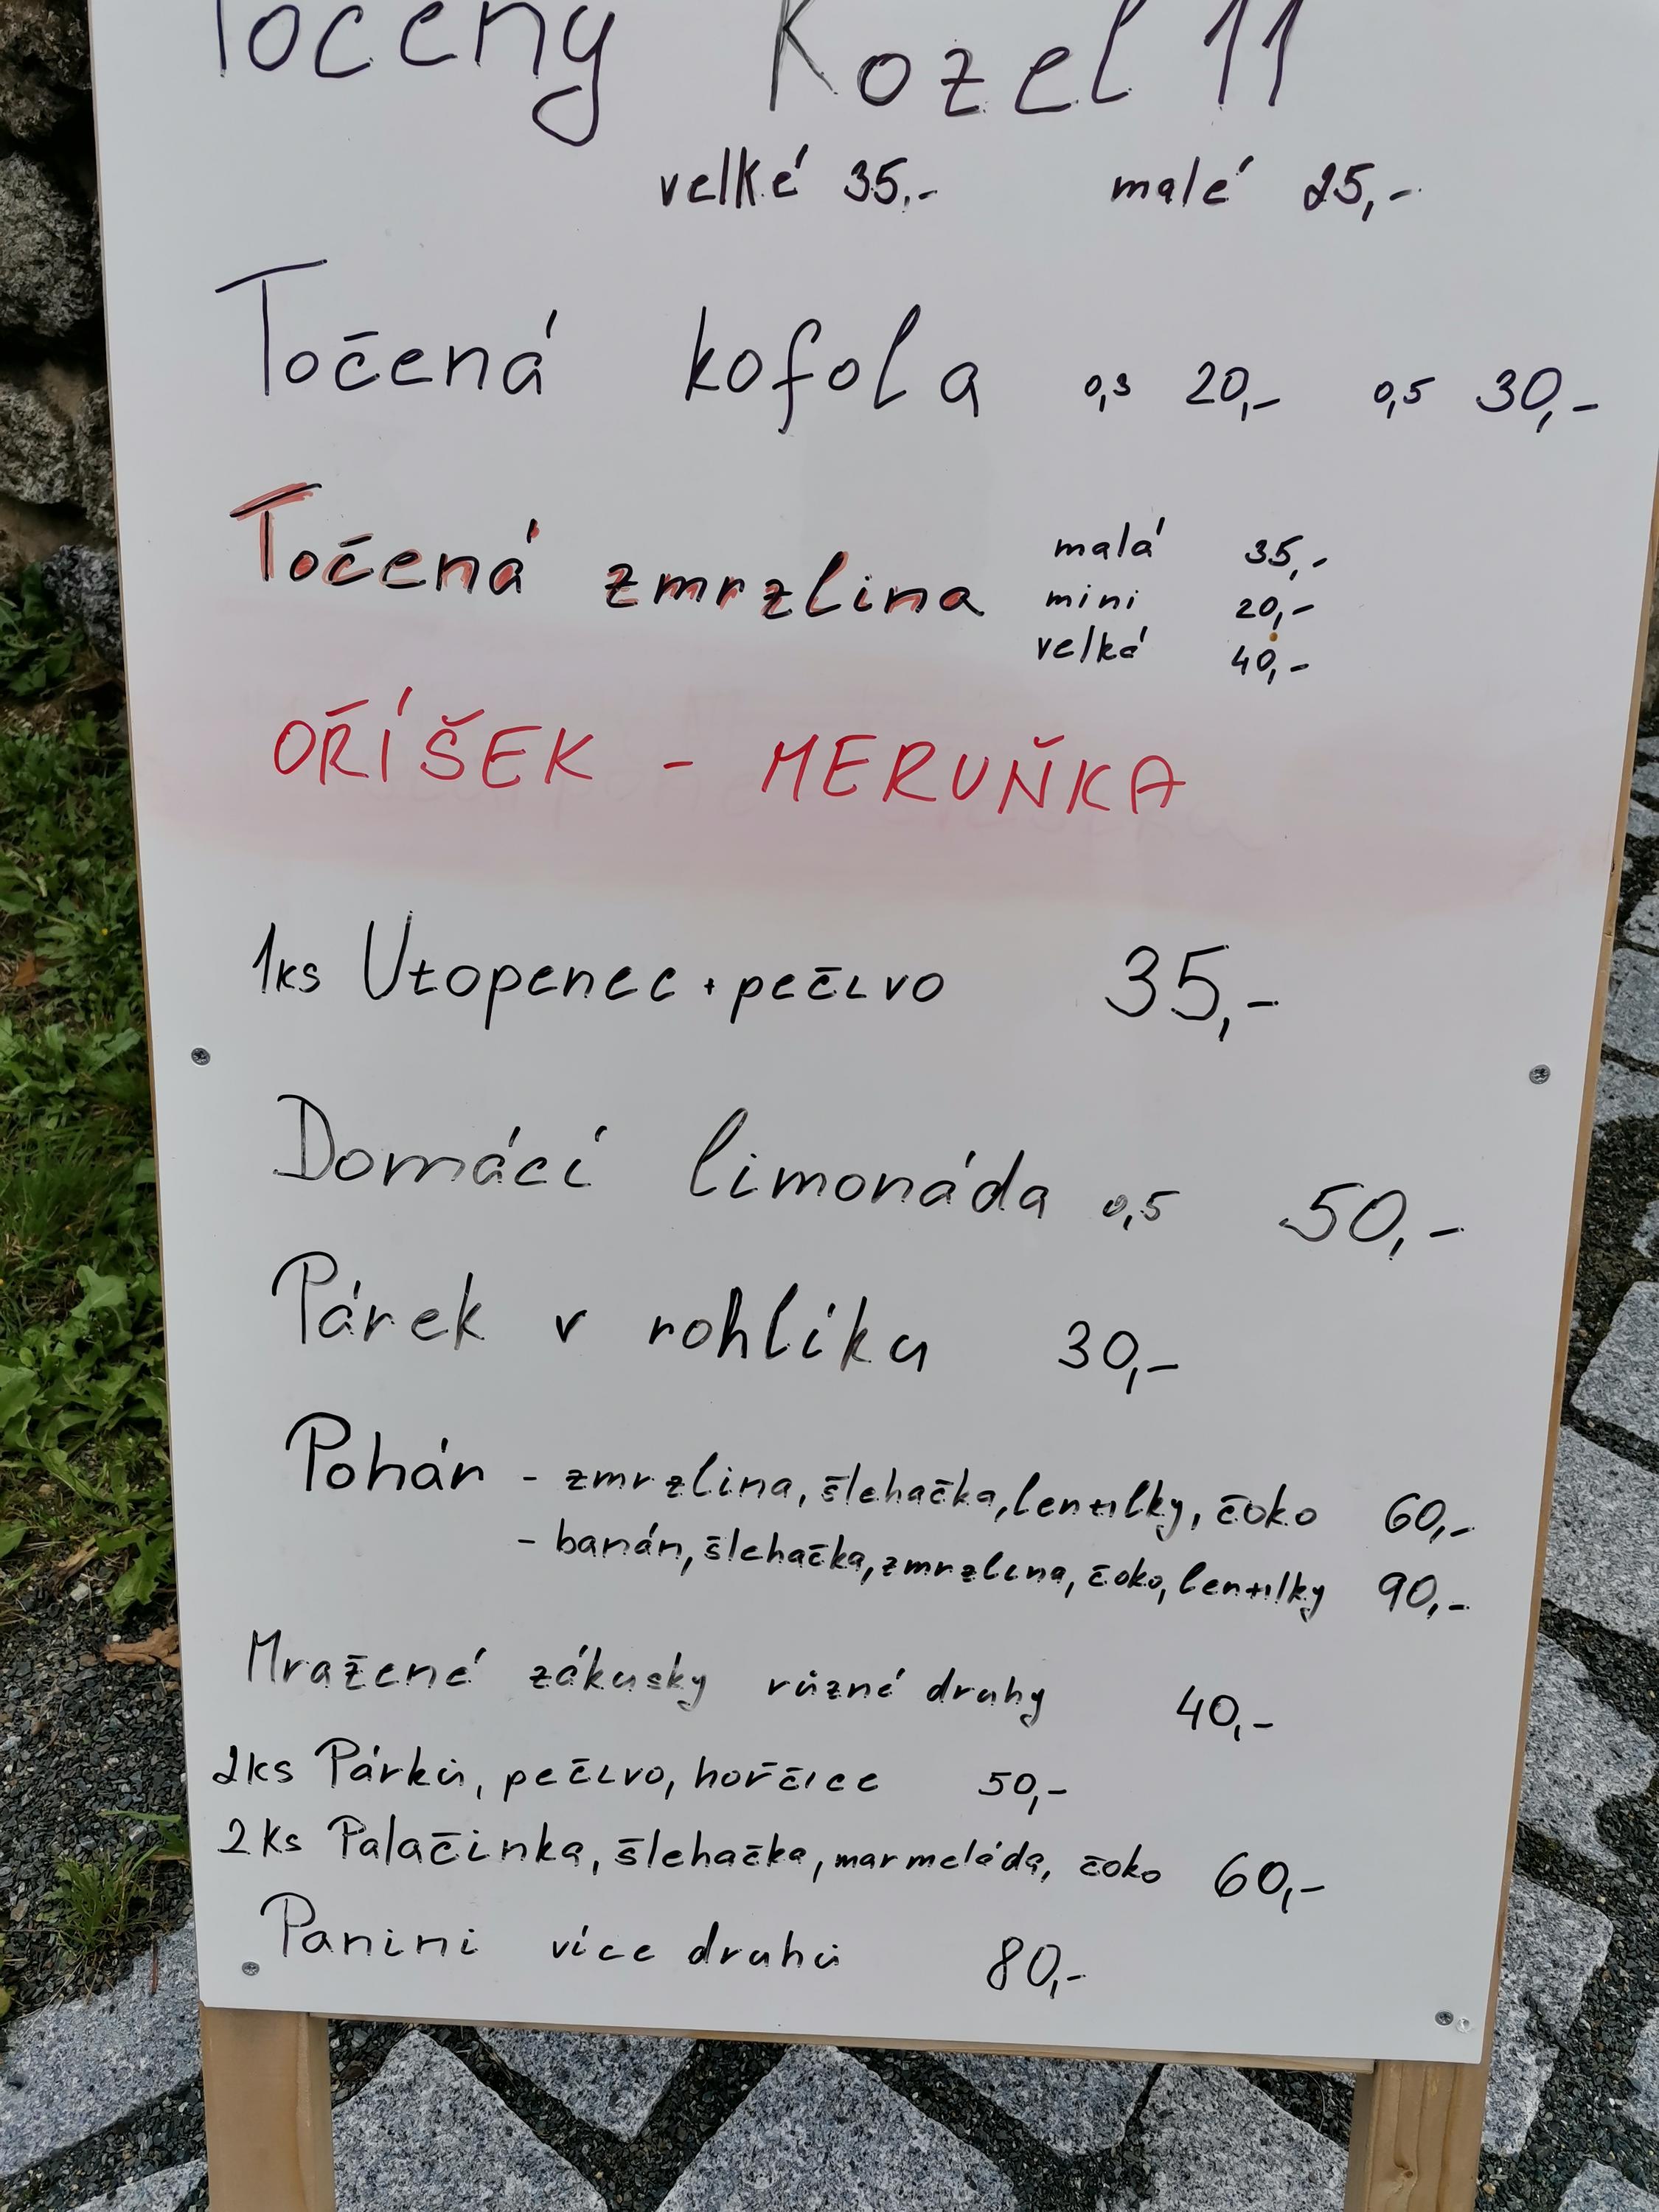 Točený Kozel 11
velké 35,- malé 25,-
Točená kofola 0,3 20,- 0,5 30,-
Točená zmrzlina malá 35,-
mini 20,-
velká 40,-
OŘÍŠEK - MERUŇKA
1ks Utopenec + pečivo 35,-
Domácí limonáda 0,5 50,-
Párek v rohlíku 30,-
Pohár - zmrzlina, šlehačka, lentilky, čoko 60,-
- banán, šlehačka, zmrzlina, čoko, lentilky 90,-
Mražené zákusky různé druhy 40,-
2ks Párků, pečivo, hořčice 50,-
2ks Palačinka, šlehačka, marmeláda, čoko 60,-
Panini více druhů 80,-